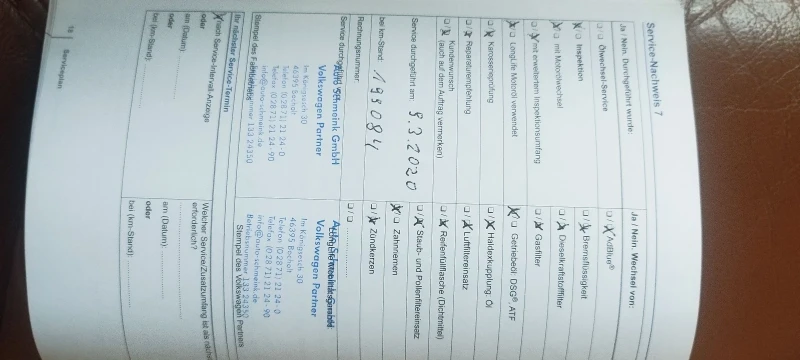 Service-Nachweis 7
Ja / Nein. Durchgeführt wurde:
Ölwechsel-Service
Inspektion
mit Motorölwechsel
mit erweitertem Inspektionsumfang
LongLife Motoröl verwendet
Karosserieprüfung
Reparaturempfehlung
Kundenwunsch
(auch auf dem Auftrag vermerken)
Service durchgeführt am: 9.3.2020
bei km-Stand: 199084
Rechnungsnummer:
Service durchgeführt von:
Auto Schmeink GmbH
Volkswagen Partner
Im Königsesch 30
46395 Bocholt
Telefon (0 28 71) 21 24 - 0
Telefax (0 28 71) 21 24 - 90
info@auto-schmeink.de
Betriebsnummer 133 24350
Stempel des Fachbetriebs
Ja / Nein. Wechsel von:
AdBlue®
Bremsflüssigkeit
Dieselkraftstofffilter
Gasfilter
Getriebeöl DSG® ATF
Haldexkupplung Öl
Luftfiltereinsatz
Reifenfüllflasche (Dichtmittel)
Staub- und Pollenfiltereinsatz
Zahnriemen
Zündkerzen
Auto Schmeink GmbH
Volkswagen Partner
Im Königsesch 30
46395 Bocholt
Telefon (0 28 71) 21 24 - 0
Telefax (0 28 71) 21 24 - 90
info@auto-schmeink.de
Betriebsnummer 133 24350
Stempel des Volkswagen Partners
Ihr nächster Service-Termin
nach Service-Intervall-Anzeige
oder
am (Datum):
oder
bei (km-Stand):
Welcher Service/Zusatzumfang ist als
erforderlich?
am (Datum):
oder
bei (km-Stand):
Serviceplan